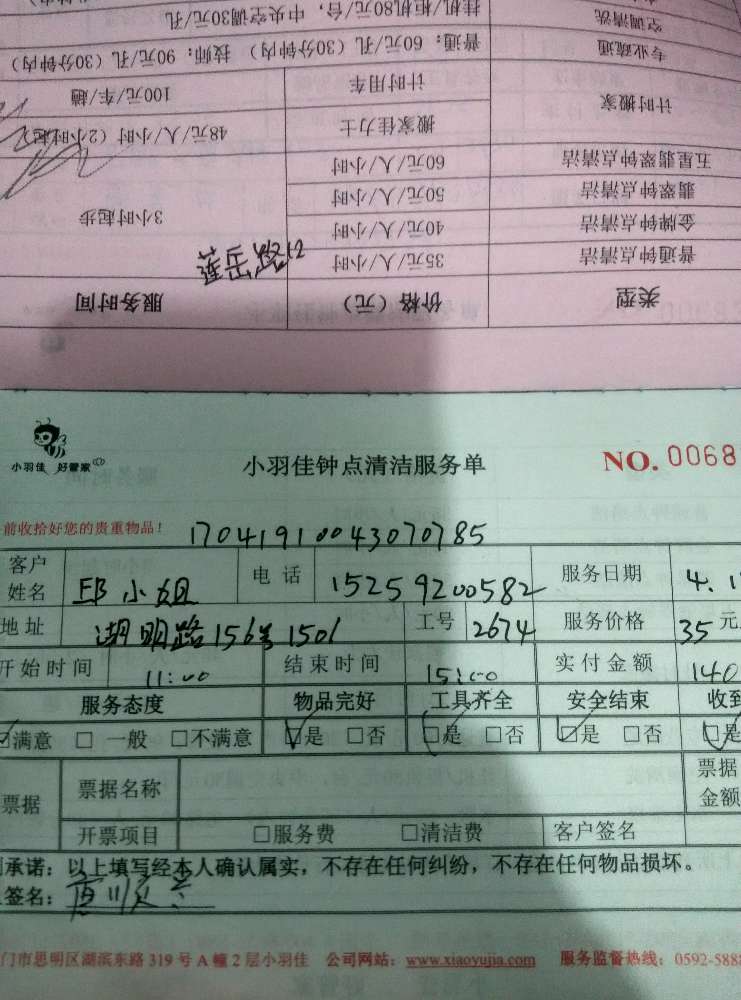 挂机/柜机80元/台，中央空调30元/孔
空调清洗
普通：60元/孔（30分钟内） 技师：90元/孔（30分钟内）
专业疏通
100元/车/趟
计时用车
计时搬家
48元/人/小时（2小时起）
搬家佳力士
60元/人/小时
五星翡翠钟点清洁
50元/人/小时
翡翠钟点清洁
3小时起步
40元/人/小时
金牌钟点清洁
莲岳路12
35元/人/小时
普通钟点清洁
服务时间
价格（元）
类型
小羽佳 好管家
小羽佳钟点清洁服务单
NO. 0068
前收拾好您的贵重物品！
17041910043070785
客户姓名
邱小姐
电话
15259200582
服务日期
4.1
地址
湖明路156号1501
工号
2674
服务价格
35元
开始时间
11:00
结束时间
15:00
实付金额
140
服务态度 物品完好 工具齐全 安全结束 收到
☑满意 □ 一般 □不满意 ☑是 □否 ☑是 □否 ☑是 □否 ☑是
票据
票据名称
票据金额
开票项目 □服务费 □清洁费 客户签名
承诺：以上填写经本人确认属实，不存在任何纠纷，不存在任何物品损坏。
签名：
门市思明区湖滨东路319号A幢2层小羽佳 公司网站：www.xiaoyujia.com 服务监督热线：0592-5888